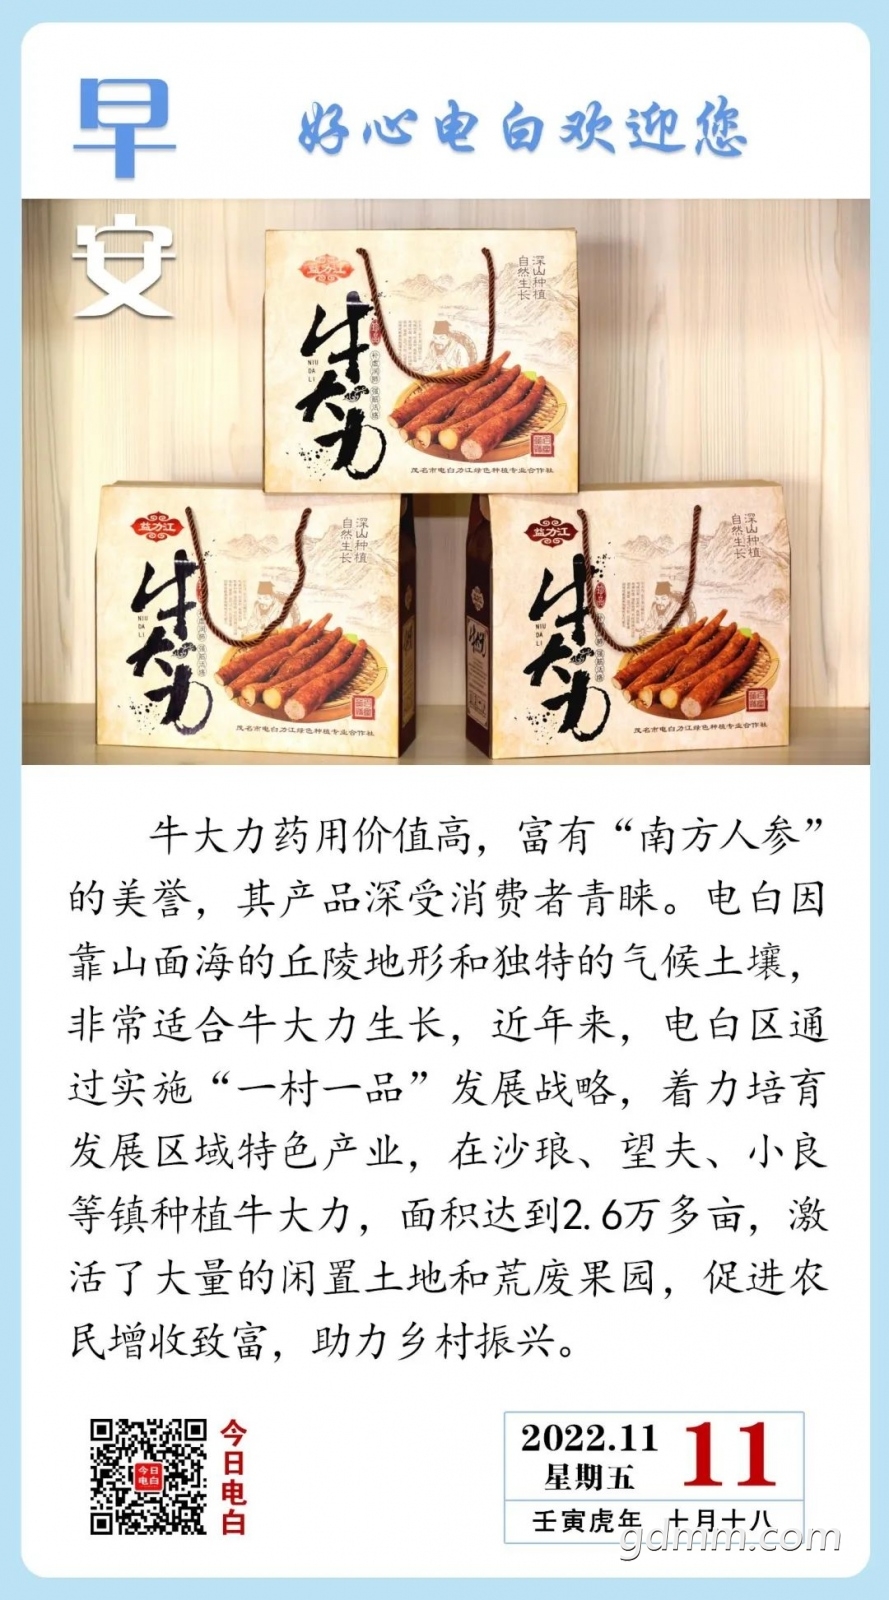 早安
好心电白欢迎您
益力江
深山种植
自然生长
牛大力
NIU
DA
LI
补虚润肺 强筋活络
茂名市电白力江绿色种植专业合作社
益力江
深山种植
自然生长
牛大力
NIU
DA
LI
补虚润肺 强筋活络
茂名市电白力江绿色种植专业合作社
益力江
深山种植
自然生长
牛大力
NIU
DA
LI
补虚润肺 强筋活络
茂名市电白力江绿色种植专业合作社
牛大力药用价值高，富有“南方人参”
的美誉，其产品深受消费者青睐。电白因
靠山面海的丘陵地形和独特的气候土壤，
非常适合牛大力生长，近年来，电白区通
过实施“一村一品”发展战略，着力培育
发展区域特色产业，在沙琅、望夫、小良
等镇种植牛大力，面积达到2.6万多亩，激
活了大量的闲置土地和荒废果园，促进农
民增收致富，助力乡村振兴。
今日
电白
今日电白
2022.11
星期五
11
壬寅虎年 十月十八
gdmm.com